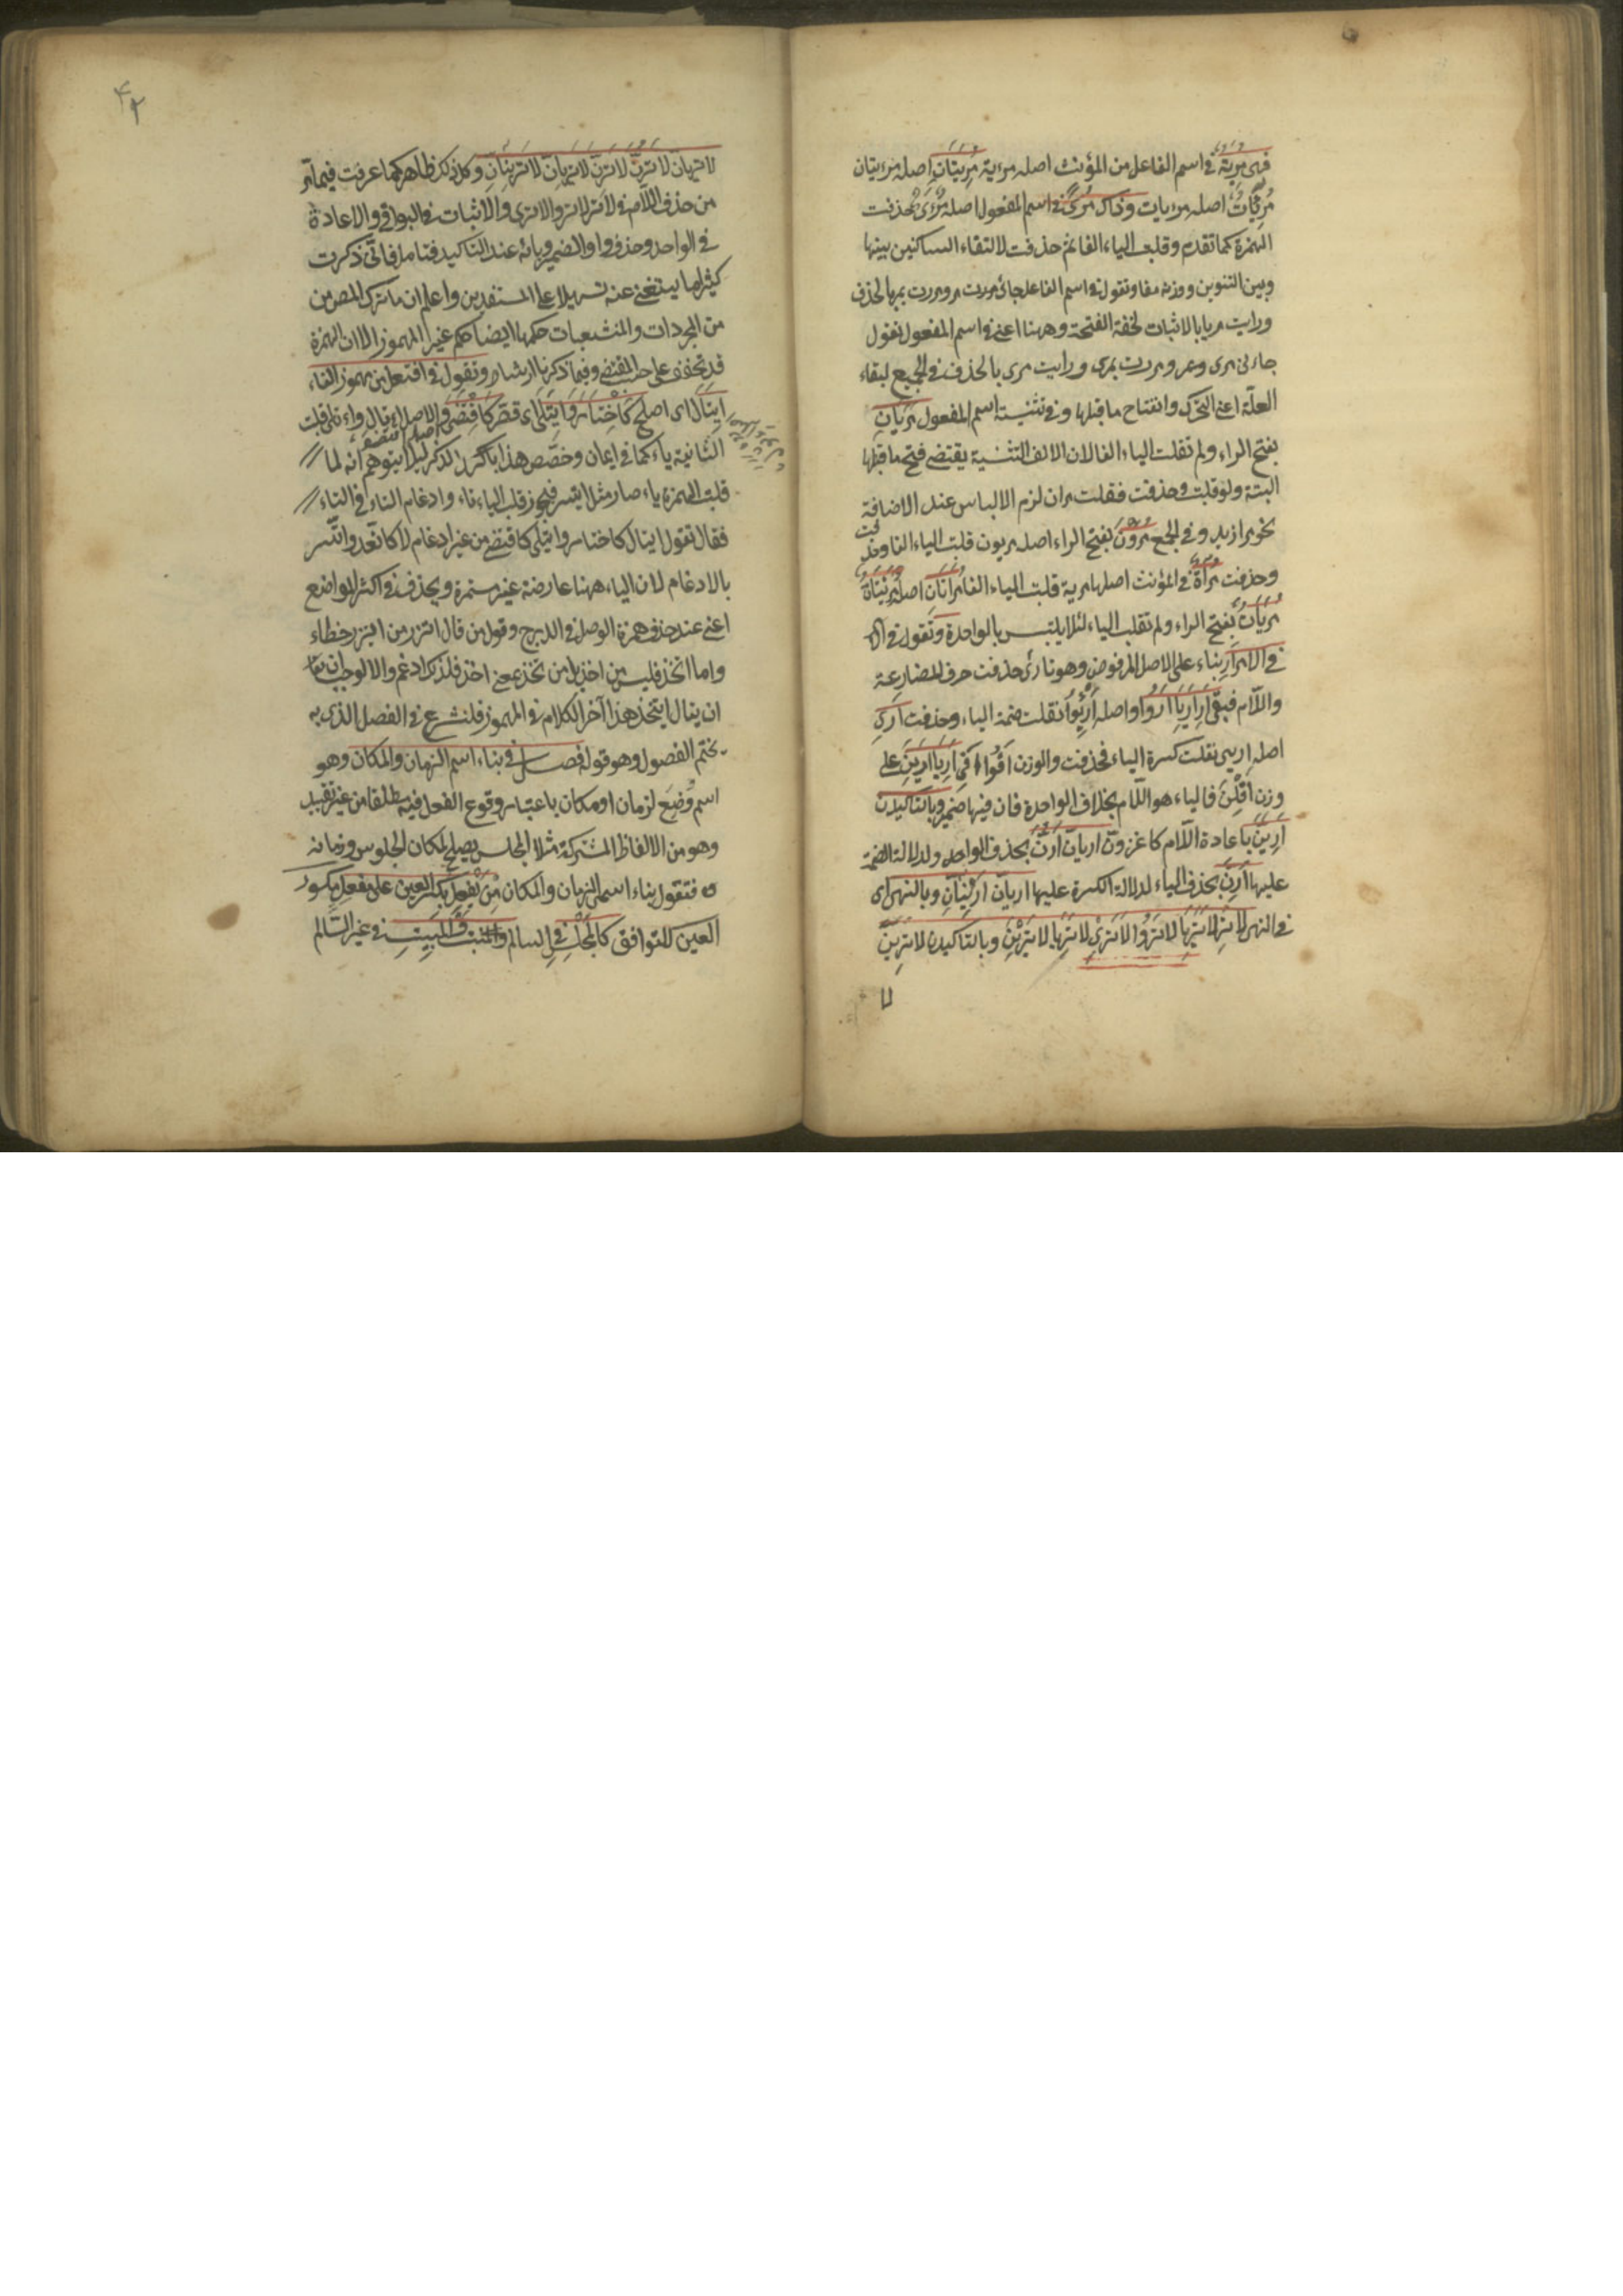 فهى مرية فى اسم الفاعل من المؤنث اصله مرءية مريتان اصله مرءيتان
مريات اصله مرءيات وذاك مرى فى اسم المفعول اصله مرءى فحذفت
الهمزة كما تقدم وقلبت الياء الفا ثم حذفت لالتقاء الساكنين بينها
وبين التنوين ووزنه مفا وتقول فى اسم الفاعل جائى مر ومررت بمر بالحذف
ورايت مريا بالاثبات لخفة الفتحة وههنا اعنى فى اسم المفعول تقول
جاءنى مرى ومررت بمرى ورايت مرى بالحذف فى الجميع لبقاء
العلة اعنى التحرك وانفتاح ما قبلها وفى تثنية اسم المفعول مريان
بفتح الراء ولم تقلب الياء الفا لان الالف التثنية يقتضى فتح ما قبلها
البتة ولو قلبت وحذفت فقلت مران لزم الالباس عند الاضافة
نحو مرا زيد وفى الجمع مرون بفتح الراء اصله مريون قلبت الياء الفا
وحذفت مراة فى المؤنث اصلها مرية قلبت الياء الفا مراتان اصله مريتان
مريات بفتح الراء ولم تقلب الياء لئلا يلتبس بالواحدة وتقول فى
فى الامر ار بناء على الاصل المرفوض وهو تارئى حذفت حرف المضارعة
واللام فبقى ار اريا اروا واصله اريوا نقلت ضمة الياء وحذفت ارى
اصله اريى نقلت كسرة الياء فحذفت والوزن افوا وافى اريا ارين على
وزن افلن فالياء هو اللام بخلاف الواحدة فان فيها ضمير وبالتاكيد
ارين باعادة اللام كاغزون اريان ارن بحذف الواو لدلالة الضمة
عليها ارن بحذف الياء لدلالة الكسرة عليها اريان ارينان وبالنهى اى
فى النهى لا تر لا تريا لا تروا لا ترى لا تريا لا ترين وبالتاكيد لا ترين
لا
لا تريان لا ترن لا ترن لا تريان لا ترينان وكل ذلك ظاهر كما عرفت فيما مر
من حذف اللام فى لا تر لا تروا لا ترى والاثبات فى البواقى والاعادة
فى الواحد وحذف واو الضمير ويائه عند التاكيد فتامل فانى ذكرت
كثيرا مما يستغنى عنه تسهيلا على المستفيدين واعلم ان ما ترك المص من
من المجردات والمنشعبات حكمها ايضا حكم غير المهموز الا ان الهمزة
قد تخفف على حسب المقتضى وفيما ذكرنا ارشاد وتقول فى افتعل من مهموز الفاء
ايتال اى اصلح كاختار وايتلى اى قصر كاقتضى والاصل اءتال واءتلى قلبت
الثانية ياء كما فى ايمان وخصص هذا بالذكر لئلا يتوهم انه لما
قلبت الهمزة ياء صار مثل ايتسر فيجوز قلب الياء تاء وادغام التاء فى التاء
فقال تقول ايتال كاختار وايتلى كاقتضى من غير ادغام لا كاتعد واتسر
بالادغام لان الياء ههنا عارضة غير مستمرة ويحذف فى اكثر المواضع
اعنى عند حذف همزة الوصل فى الدرج وقول من قال اتزر من ايتزر خطاء
واما اتخذ فليس من اخذ بل من تخذ بمعنى اخذ فلذلك ادغم والا لوجب
ان يقال ايتخذ هذا آخر الكلام فى المهموز فلنشرع فى الفصل الذى به
يختم الفصول وهو قوله فصل فى بناء اسم الزمان والمكان وهو
اسم وضع لزمان او مكان باعتبار وقوع الفعل فيه مطلقا من غير تقييد
وهو من الالفاظ المشتركة مثلا المجلس يصلح لمكان الجلوس وزمانه
فتقول بناء اسمى الزمان والمكان من يفعل بكسر العين على مفعل مكسور
العين للتوافق كالمجلس فى السالم والمبيت فى غير السالم